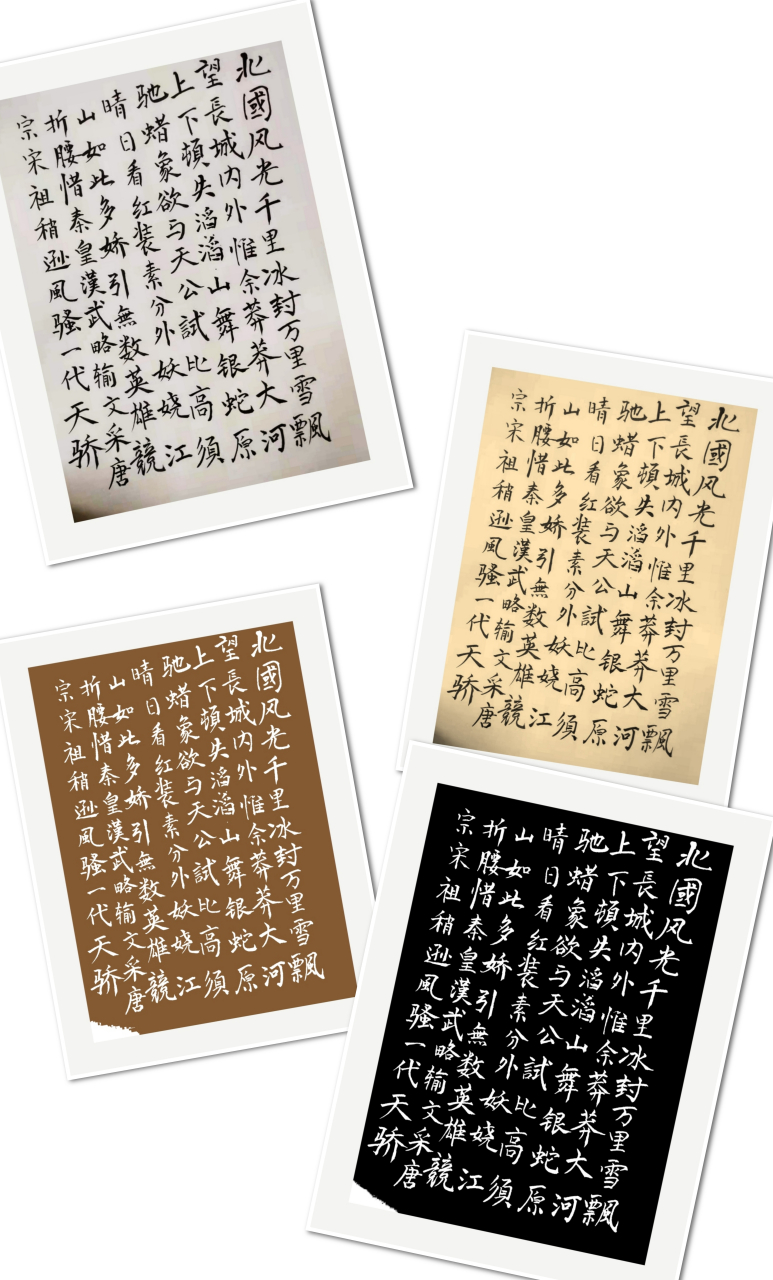 北國风光千里冰封万里雪飄
望長城内外惟余莽莽大河
上下頓失滔滔山舞银蛇原
驰蜡象欲与天公試比高須
晴日看红装素分外妖娆江
山如此多娇引無数英雄競
折腰惜秦皇漢武略输文采唐
宗宋祖稍逊風骚一代天骄
北國风光千里冰封万里雪飄
望長城内外惟余莽莽大河
上下頓失滔滔山舞银蛇原
驰蜡象欲与天公試比高須
晴日看红装素分外妖娆江
山如此多娇引無数英雄競
折腰惜秦皇漢武略输文采唐
宗宋祖稍逊風骚一代天骄
北國风光千里冰封万里雪飄
望長城内外惟余莽莽大河
上下頓失滔滔山舞银蛇原
驰蜡象欲与天公試比高須
晴日看红装素分外妖娆江
山如此多娇引無数英雄競
折腰惜秦皇漢武略输文采唐
宗宋祖稍逊風骚一代天骄
北國风光千里冰封万里雪飄
望長城内外惟余莽莽大河
上下頓失滔滔山舞银蛇原
驰蜡象欲与天公試比高須
晴日看红装素分外妖娆江
山如此多娇引無数英雄競
折腰惜秦皇漢武略输文采唐
宗宋祖稍逊風骚一代天骄